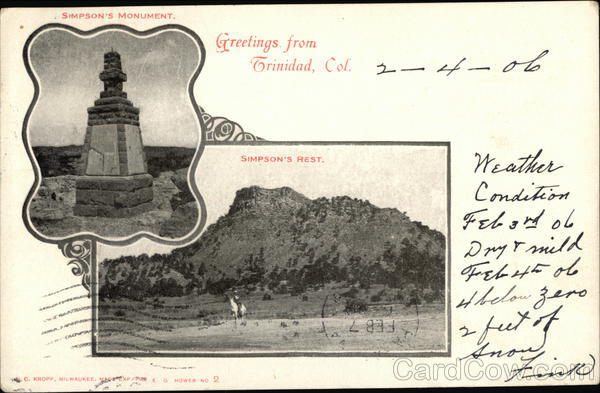 SIMPSON'S MONUMENT.
Greetings from
Trinidad, Col.
2-4-06
SIMPSON'S REST.
Weather
Condition
Feb 3rd 06
Dry & mild
Feb 4th 06
4 below zero
2 feet of
snow
FEB 7
C. KROPP, MILWAUKEE,
E. G. HOWER NO. 2
CardCow.com